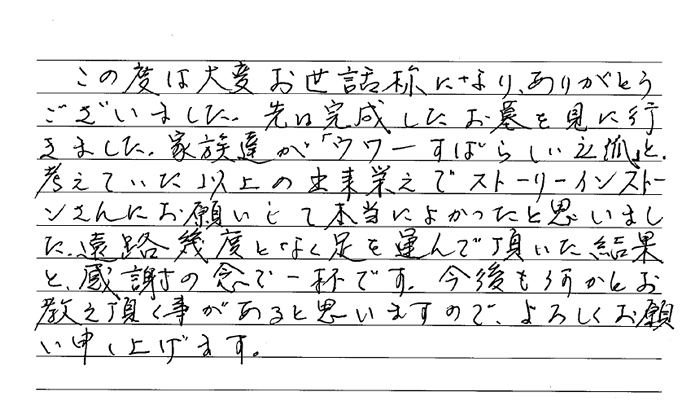 この度は大変お世話様になり、ありがとう
ございました。先日完成したお墓を見に行
きました。家族達が「ウワーすばらしい立派」と、
考えていた以上の出来栄えでストーリーインストー
ンさんにお願いして本当によかったと思いまし
た。遠路幾度となく足を運んで頂いた結果
と、感謝の念で一杯です。今後も何かとお
教え頂く事があると思いますので、よろしくお願
い申し上げます。